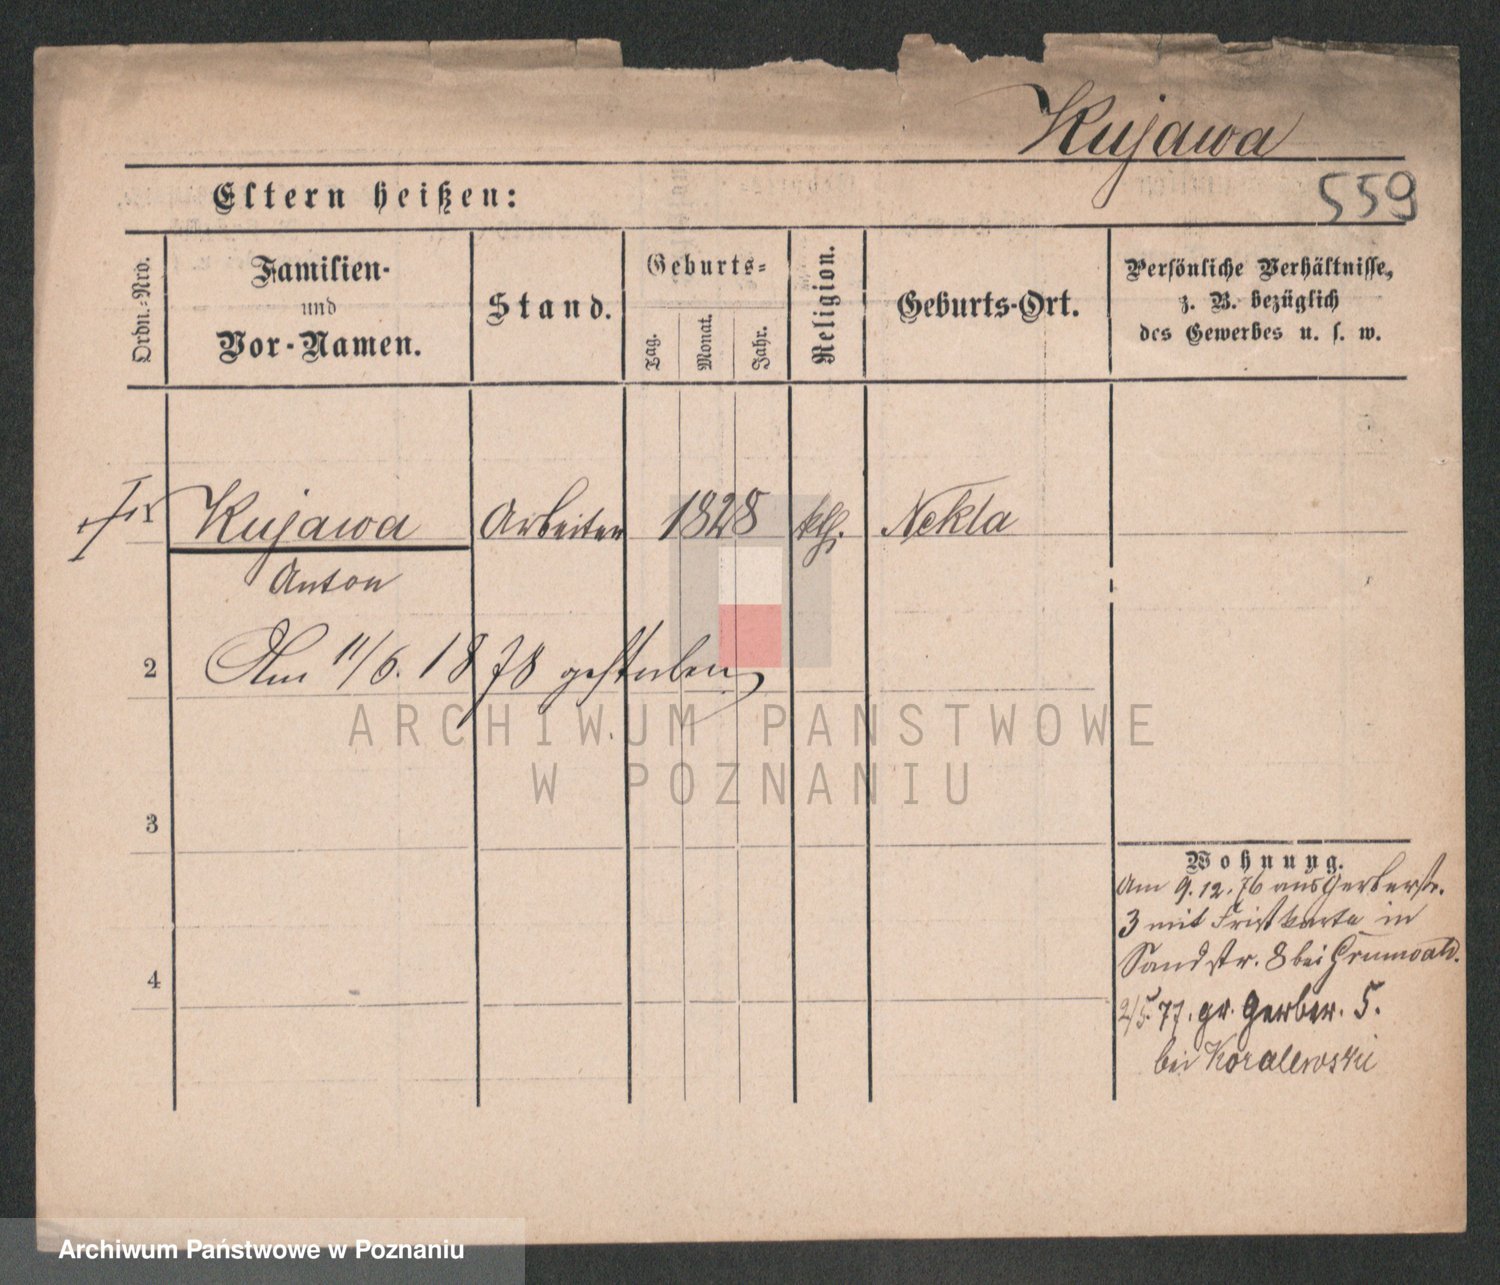 Kujawa
559
Eltern heißen:
Ordn.-Nro.
Familien-
und
Vor-Namen.
Stand.
Geburts-
Tag.
Monat.
Jahr.
Religion.
Geburts-Ort.
Persönliche Verhältnisse,
z. B. bezüglich
des Gewerbes u. s. w.
1 Kujawa Arbeiter 1828 kth. Nekla
Anton
2 Am 11/6. 1878 gestorben
3
4
Wohnung.
Am 9.12.76 aus Gerberstr.
3 mit Fristkarte in
Sandstr. 8 bei Grunwald.
2/5.77. gr. Gerber. 5.
bei Koralewski
ARCHIWUM PANSTWOWE
W POZNANIU
Archiwum Państwowe w Poznaniu